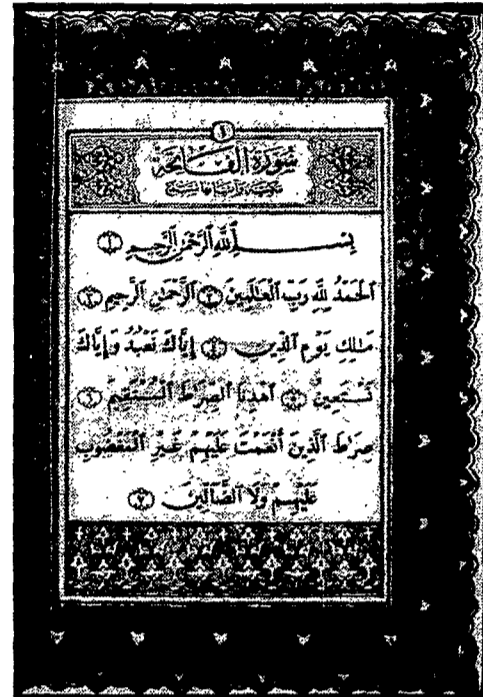 ١
سُورَةُ الْفَاتِحَةِ
مكية وآياتها سبع
بِسْمِ ٱللَّهِ ٱلرَّحْمَٰنِ ٱلرَّحِيمِ ١
ٱلْحَمْدُ لِلَّهِ رَبِّ ٱلْعَٰلَمِينَ ٢ ٱلرَّحْمَٰنِ ٱلرَّحِيمِ ٣
مَٰلِكِ يَوْمِ ٱلدِّينِ ٤ إِيَّاكَ نَعْبُدُ وَإِيَّاكَ
نَسْتَعِينُ ٥ ٱهْدِنَا ٱلصِّرَٰطَ ٱلْمُسْتَقِيمَ ٦
صِرَٰطَ ٱلَّذِينَ أَنْعَمْتَ عَلَيْهِمْ غَيْرِ ٱلْمَغْضُوبِ
عَلَيْهِمْ وَلَا ٱلضَّآلِّينَ ٧